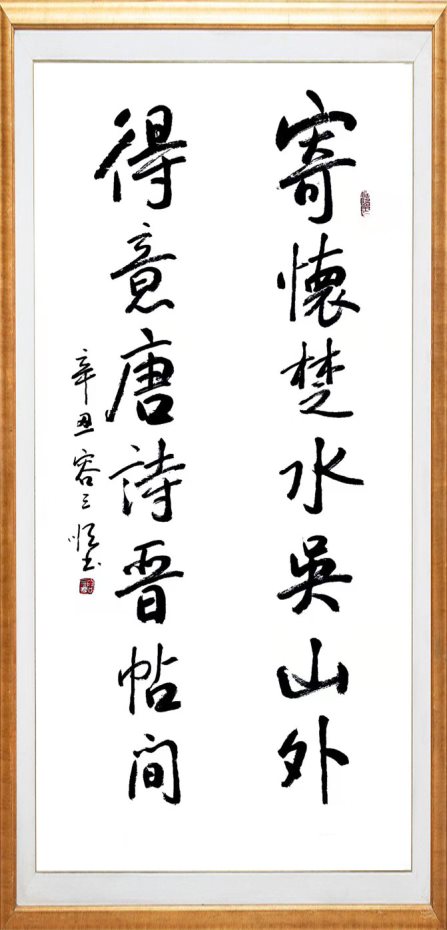 寄懷楚水吳山外
得意唐詩晉帖間
辛丑容三恒书